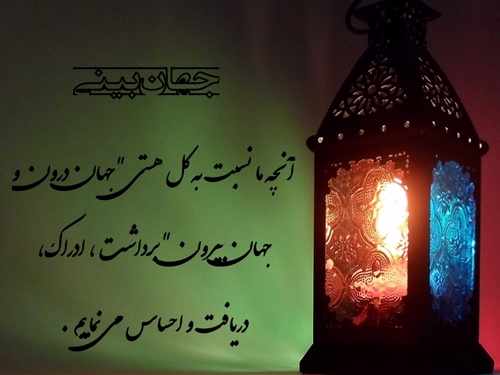 جهان بینی
آنچه ما نسبت به کل هستی "جهان درون و
جهان بیرون" برداشت ، ادراک،
دریافت و احساس می نماییم .